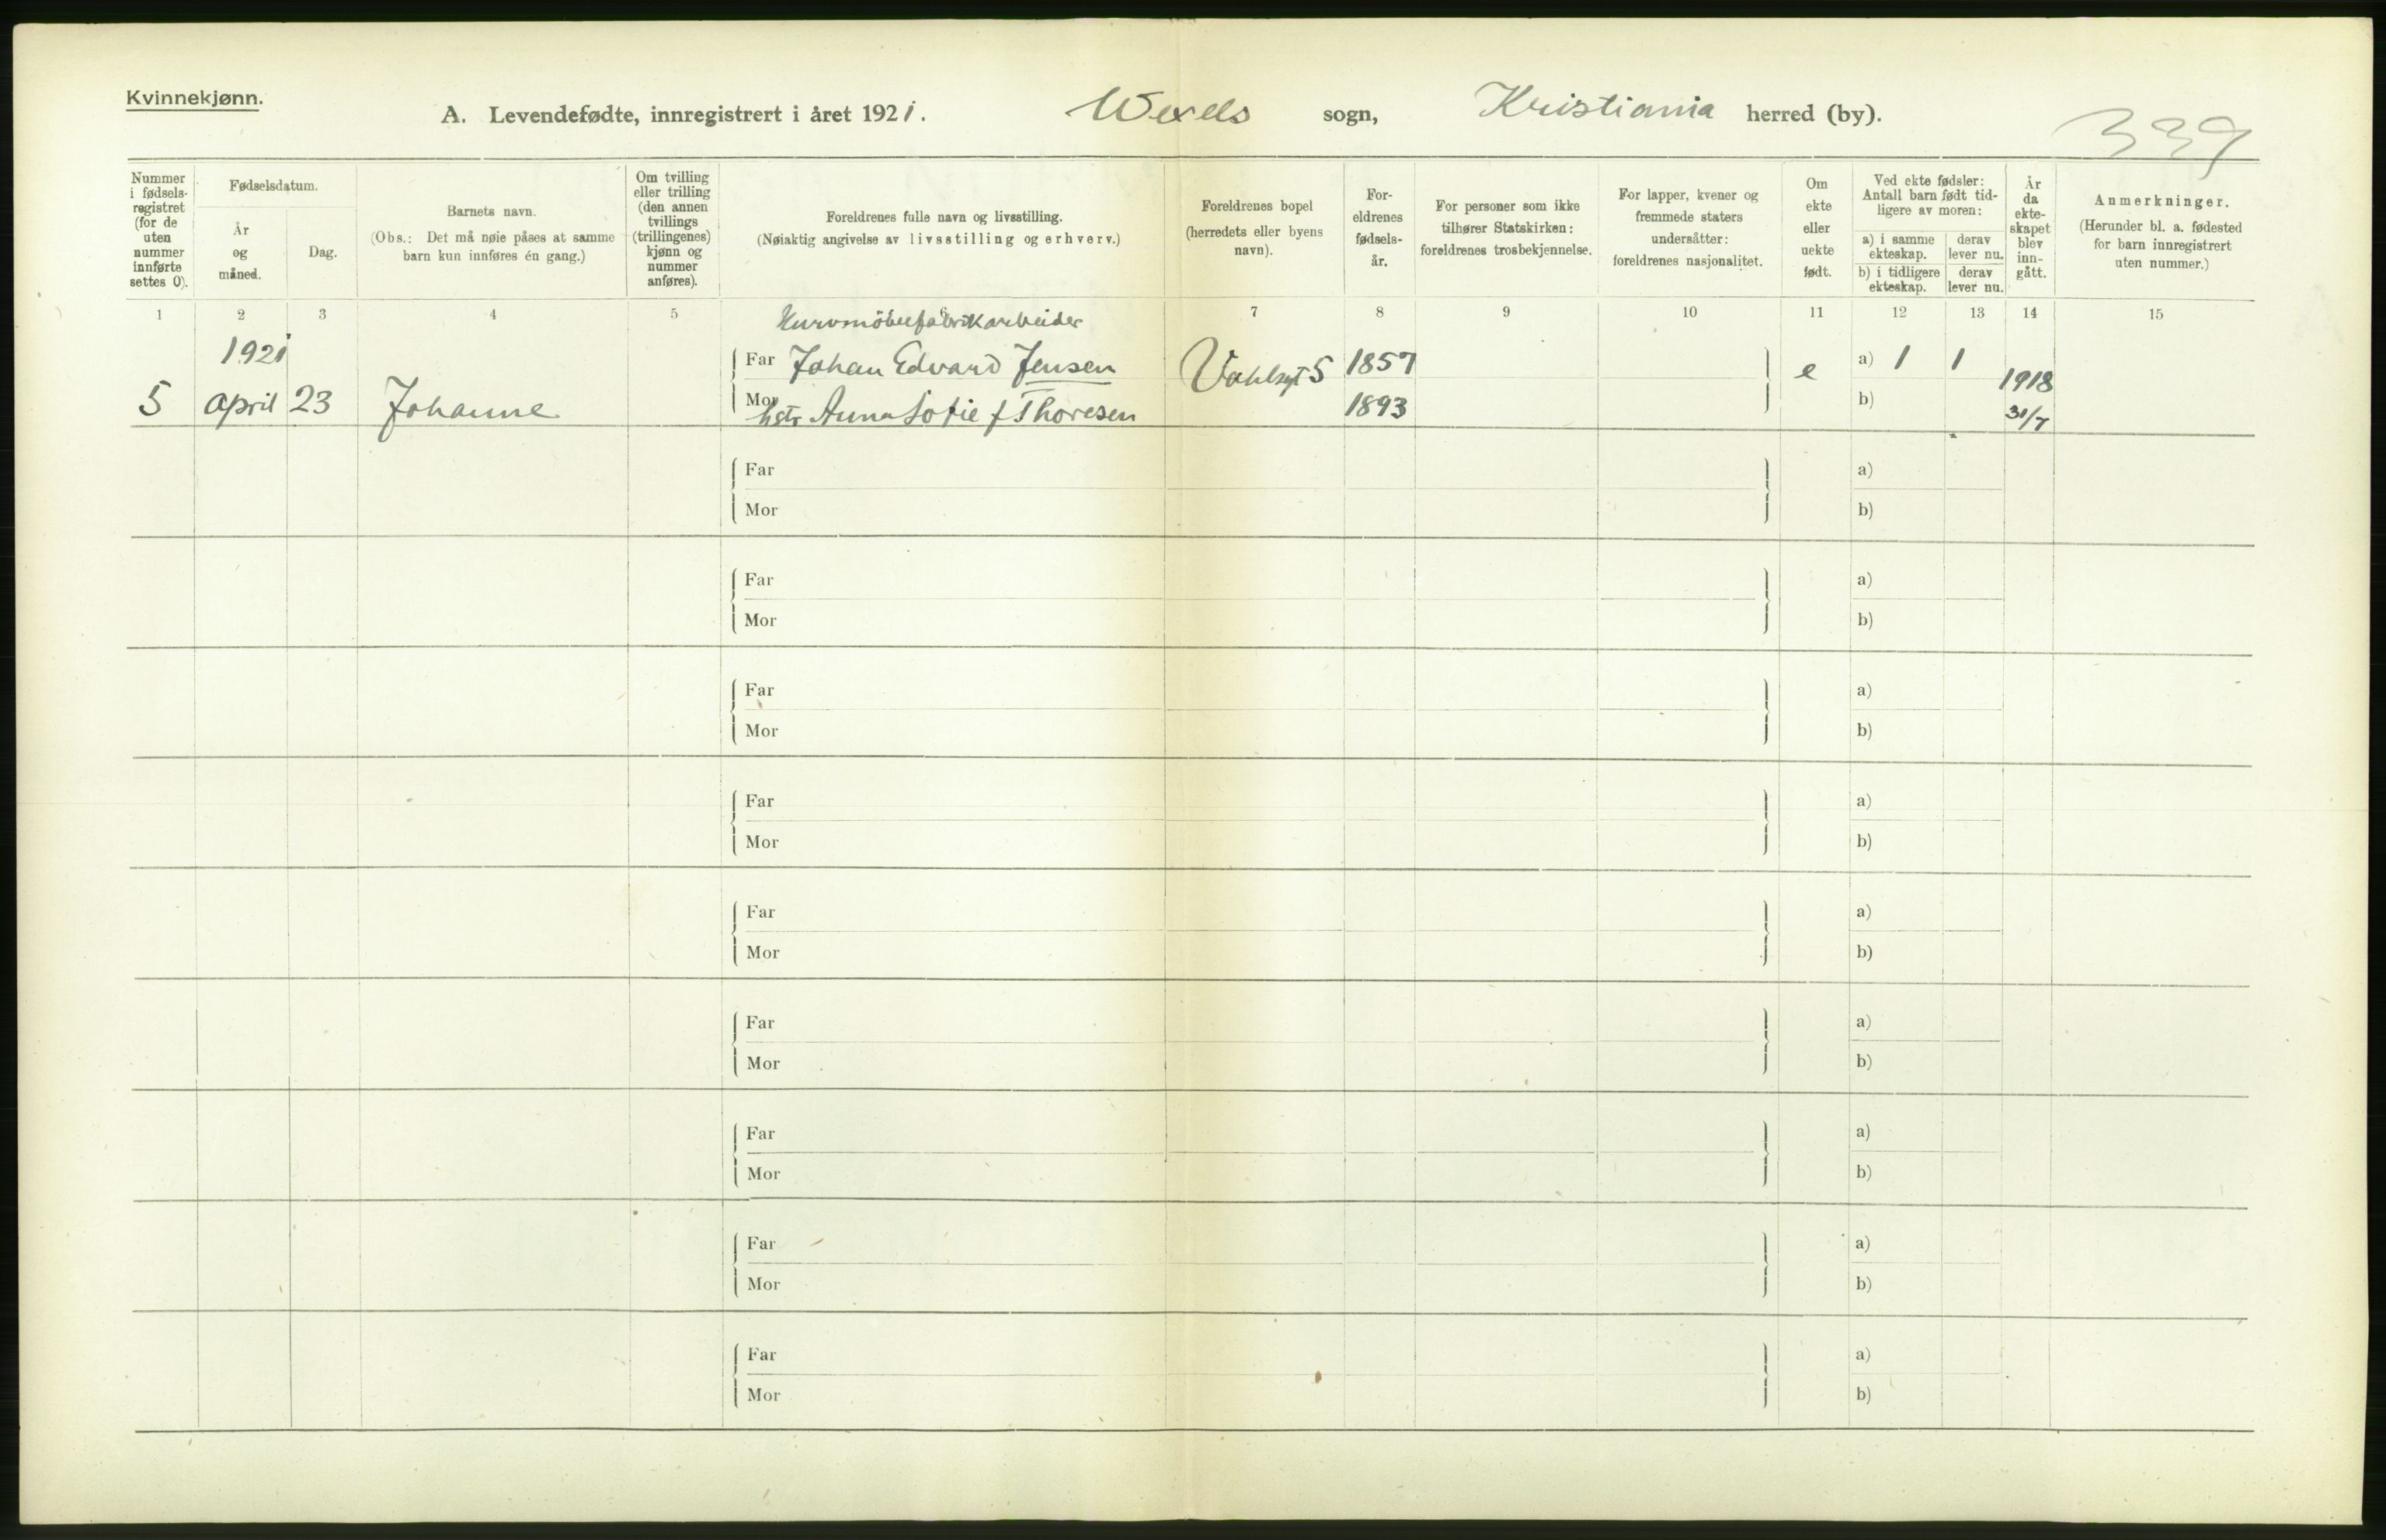 Kvinnekjønn.
A. Levendefødte, innregistrert i året 1921. Wexels sogn, Kristiania herred (by).
339
Nummer i fødsels- registret (for de uten nummer innførte settes 0).
Fødselsdatum.
År og måned.
Dag.
Barnets navn.
(Obs.: Det må nøie påses at samme barn kun innføres én gang.)
Om tvilling eller trilling (den annen tvillings (trillingenes) kjønn og nummer anføres).
Foreldrenes fulle navn og livsstilling.
(Nøiaktig angivelse av livsstilling og erhverv.)
Foreldrenes bopel (herredets eller byens navn).
For- eldrenes fødsels- år.
For personer som ikke tilhører Statskirken: foreldrenes trosbekjennelse.
For lapper, kvener og fremmede staters undersåtter: foreldrenes nasjonalitet.
Om ekte eller uekte født.
Ved ekte fødsler: Antall barn født tid- ligere av moren:
a) i samme ekteskap.
derav lever nu.
b) i tidligere ekteskap.
derav lever nu.
År da ekte- skapet blev inn- gått.
Anmerkninger.
(Herunder bl. a. fødested for barn innregistrert uten nummer.)
1 2 3 4 5 6 7 8 9 10 11 12 13 14 15
Kurvmöbelfabrikarbeider
1921 Far Johan Edvard Jensen 1857 e a) 1 1 1918
5 april 23 Johanne Mor hstr Anna Sofie f Thoresen 1893 b) 31/7
Far a)
Mor b)
Far a)
Mor b)
Far a)
Mor b)
Far a)
Mor b)
Far a)
Mor b)
Far a)
Mor b)
Far a)
Mor b)
Far a)
Mor b)
Far a)
Mor b)